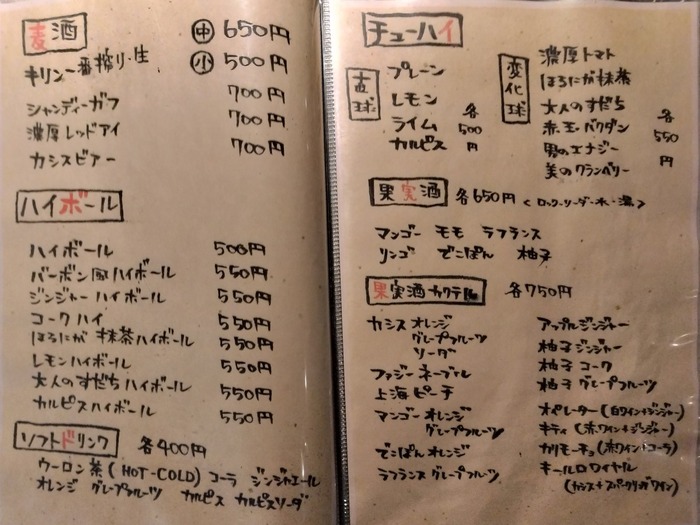 麦酒
キリン一番搾り・生 中 650円
小 500円
シャンディーガフ 700円
濃厚レッドアイ 700円
カシスビアー 700円
ハイボール
ハイボール 500円
バーボン風ハイボール 550円
ジンジャーハイボール 550円
コークハイ 550円
ほろにが抹茶ハイボール 550円
レモンハイボール 550円
大人のすだちハイボール 550円
カルピスハイボール 550円
ソフトドリンク 各400円
ウーロン茶(HOT-COLD) コーラ ジンジャエール
オレンジ グレープフルーツ カルピス カルピスソーダ
チューハイ
直球
プレーン
レモン
ライム
カルピス
各500円
変化球
濃厚トマト
ほろにが抹茶
大人のすだち
赤玉バクダン
男のエナジー
美のクランベリー
各550円
果実酒 各650円 <ロック・ソーダー・水・湯>
マンゴー モモ ラフランス
リンゴ でこぽん 柚子
果実酒カクテル 各750円
カシスオレンジ
グレープフルーツ
ソーダ
ファジーネーブル
上海ピーチ
マンゴーオレンジ
グレープフルーツ
でこぽんオレンジ
ラフランスグレープフルーツ
アップルジンジャー
柚子ジンジャー
柚子コーク
柚子グレープフルーツ
オペレーター(白ワイン+ジンジャー)
キティ(赤ワイン+ジンジャー)
カリモーチョ(赤ワイン+コーラ)
キールロワイヤル
(カシス+スパークリングワイン)